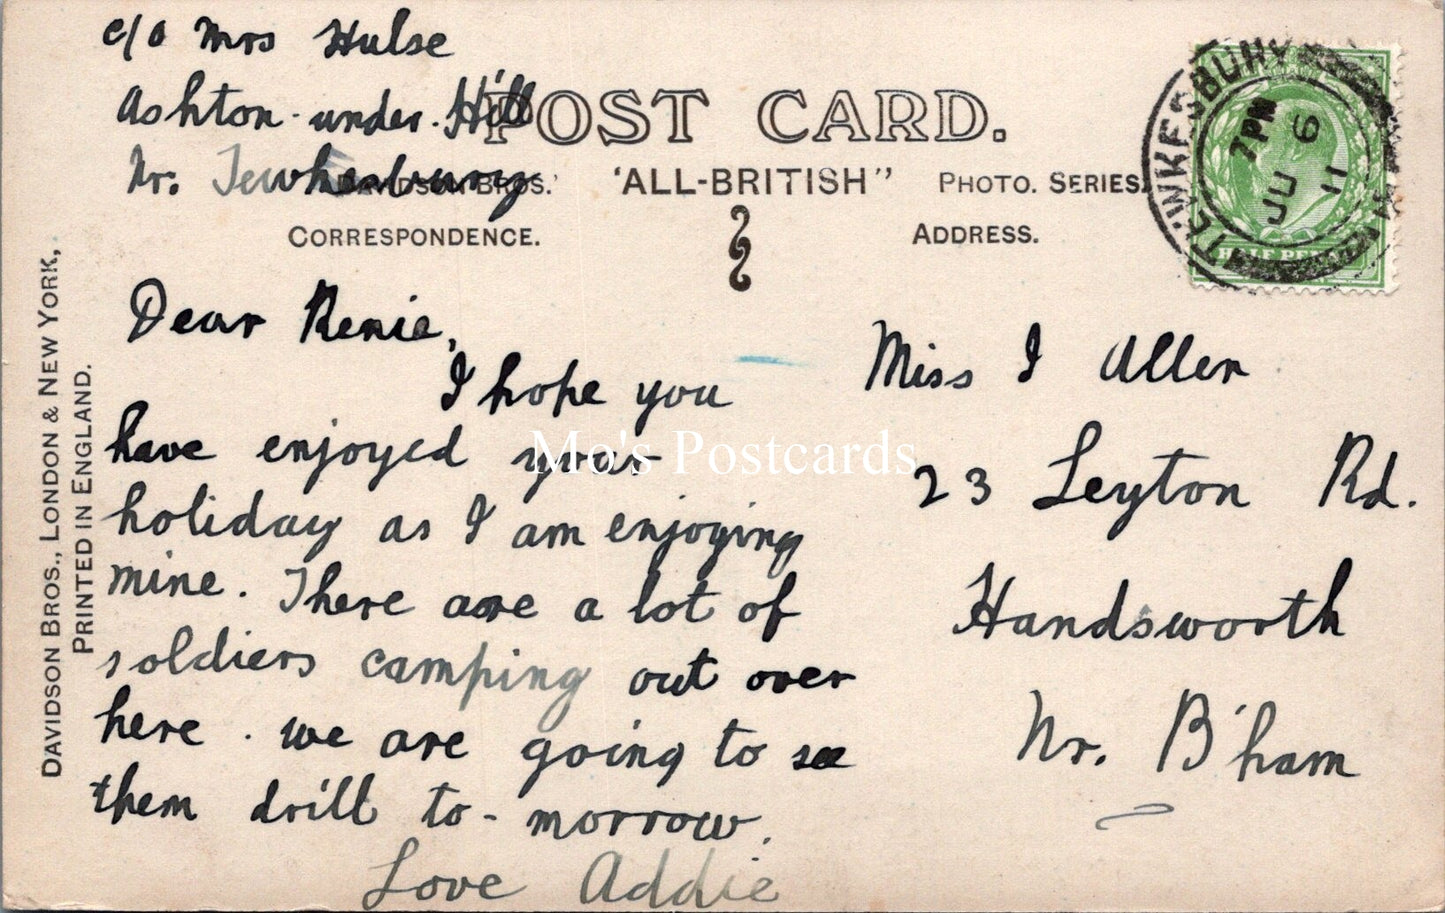 c/o Mrs Hulse
Ashton-under-Hill
Nr. Tewkesbury
POST CARD.
DAVIDSON BROS.' 'ALL-BRITISH" PHOTO. SERIES.
CORRESPONDENCE.
ADDRESS.
TEWKESBURY
7 PM
JU 6
11
HALF PENNY
DAVIDSON BROS., LONDON & NEW YORK,
PRINTED IN ENGLAND.
Dear Renie,
I hope you
have enjoyed your
holiday as I am enjoying
mine. There are a lot of
soldiers camping out over
here. we are going to see
them drill to-morrow.
Love Addie
Miss I Allen
23 Leyton Rd.
Handsworth
Nr. B'ham
Mo's Postcards